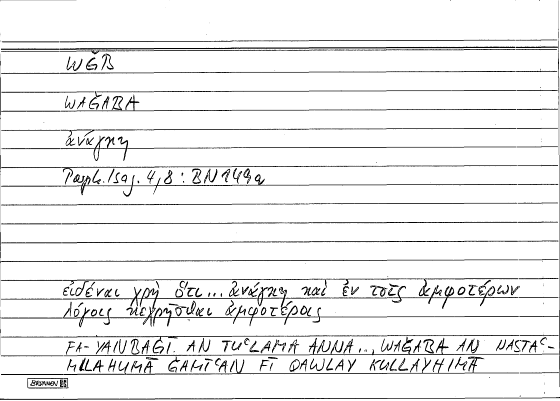 WǦB
WAǦABA
ἀνάγκη
Porph. Isag. 4,8 : BN 149a
εἰδέναι χρὴ ὅτι... ἀνάγκη καὶ ἐν τοῖς ἀμφοτέρων
λόγοις κεχρῆσθαι ἀμφοτέροις
FA-YANBAĠĪ AN TUʿLAMA ANNA... WAǦABA AN NASTAʿ-
MILAHUMĀ ǦAMĪʿAN FĪ QAWLAY KULLAYHIMĀ
BRUNNEN